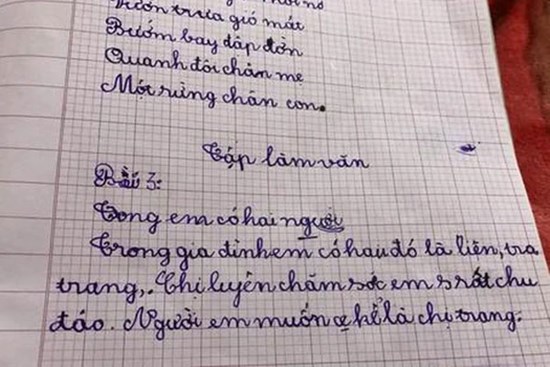 Vườn trưa gió mát
Bướm bay dập dờn
Quanh đôi chân mẹ
Một rừng chân con.
Tập làm văn
Bài 3:
Trong em có hai người
Trong gia đình em có hau đó là liện, tra
trang,. Chị luyên chăm sóc em s rất chu
đáo. Người em muốn kể là chị trang.